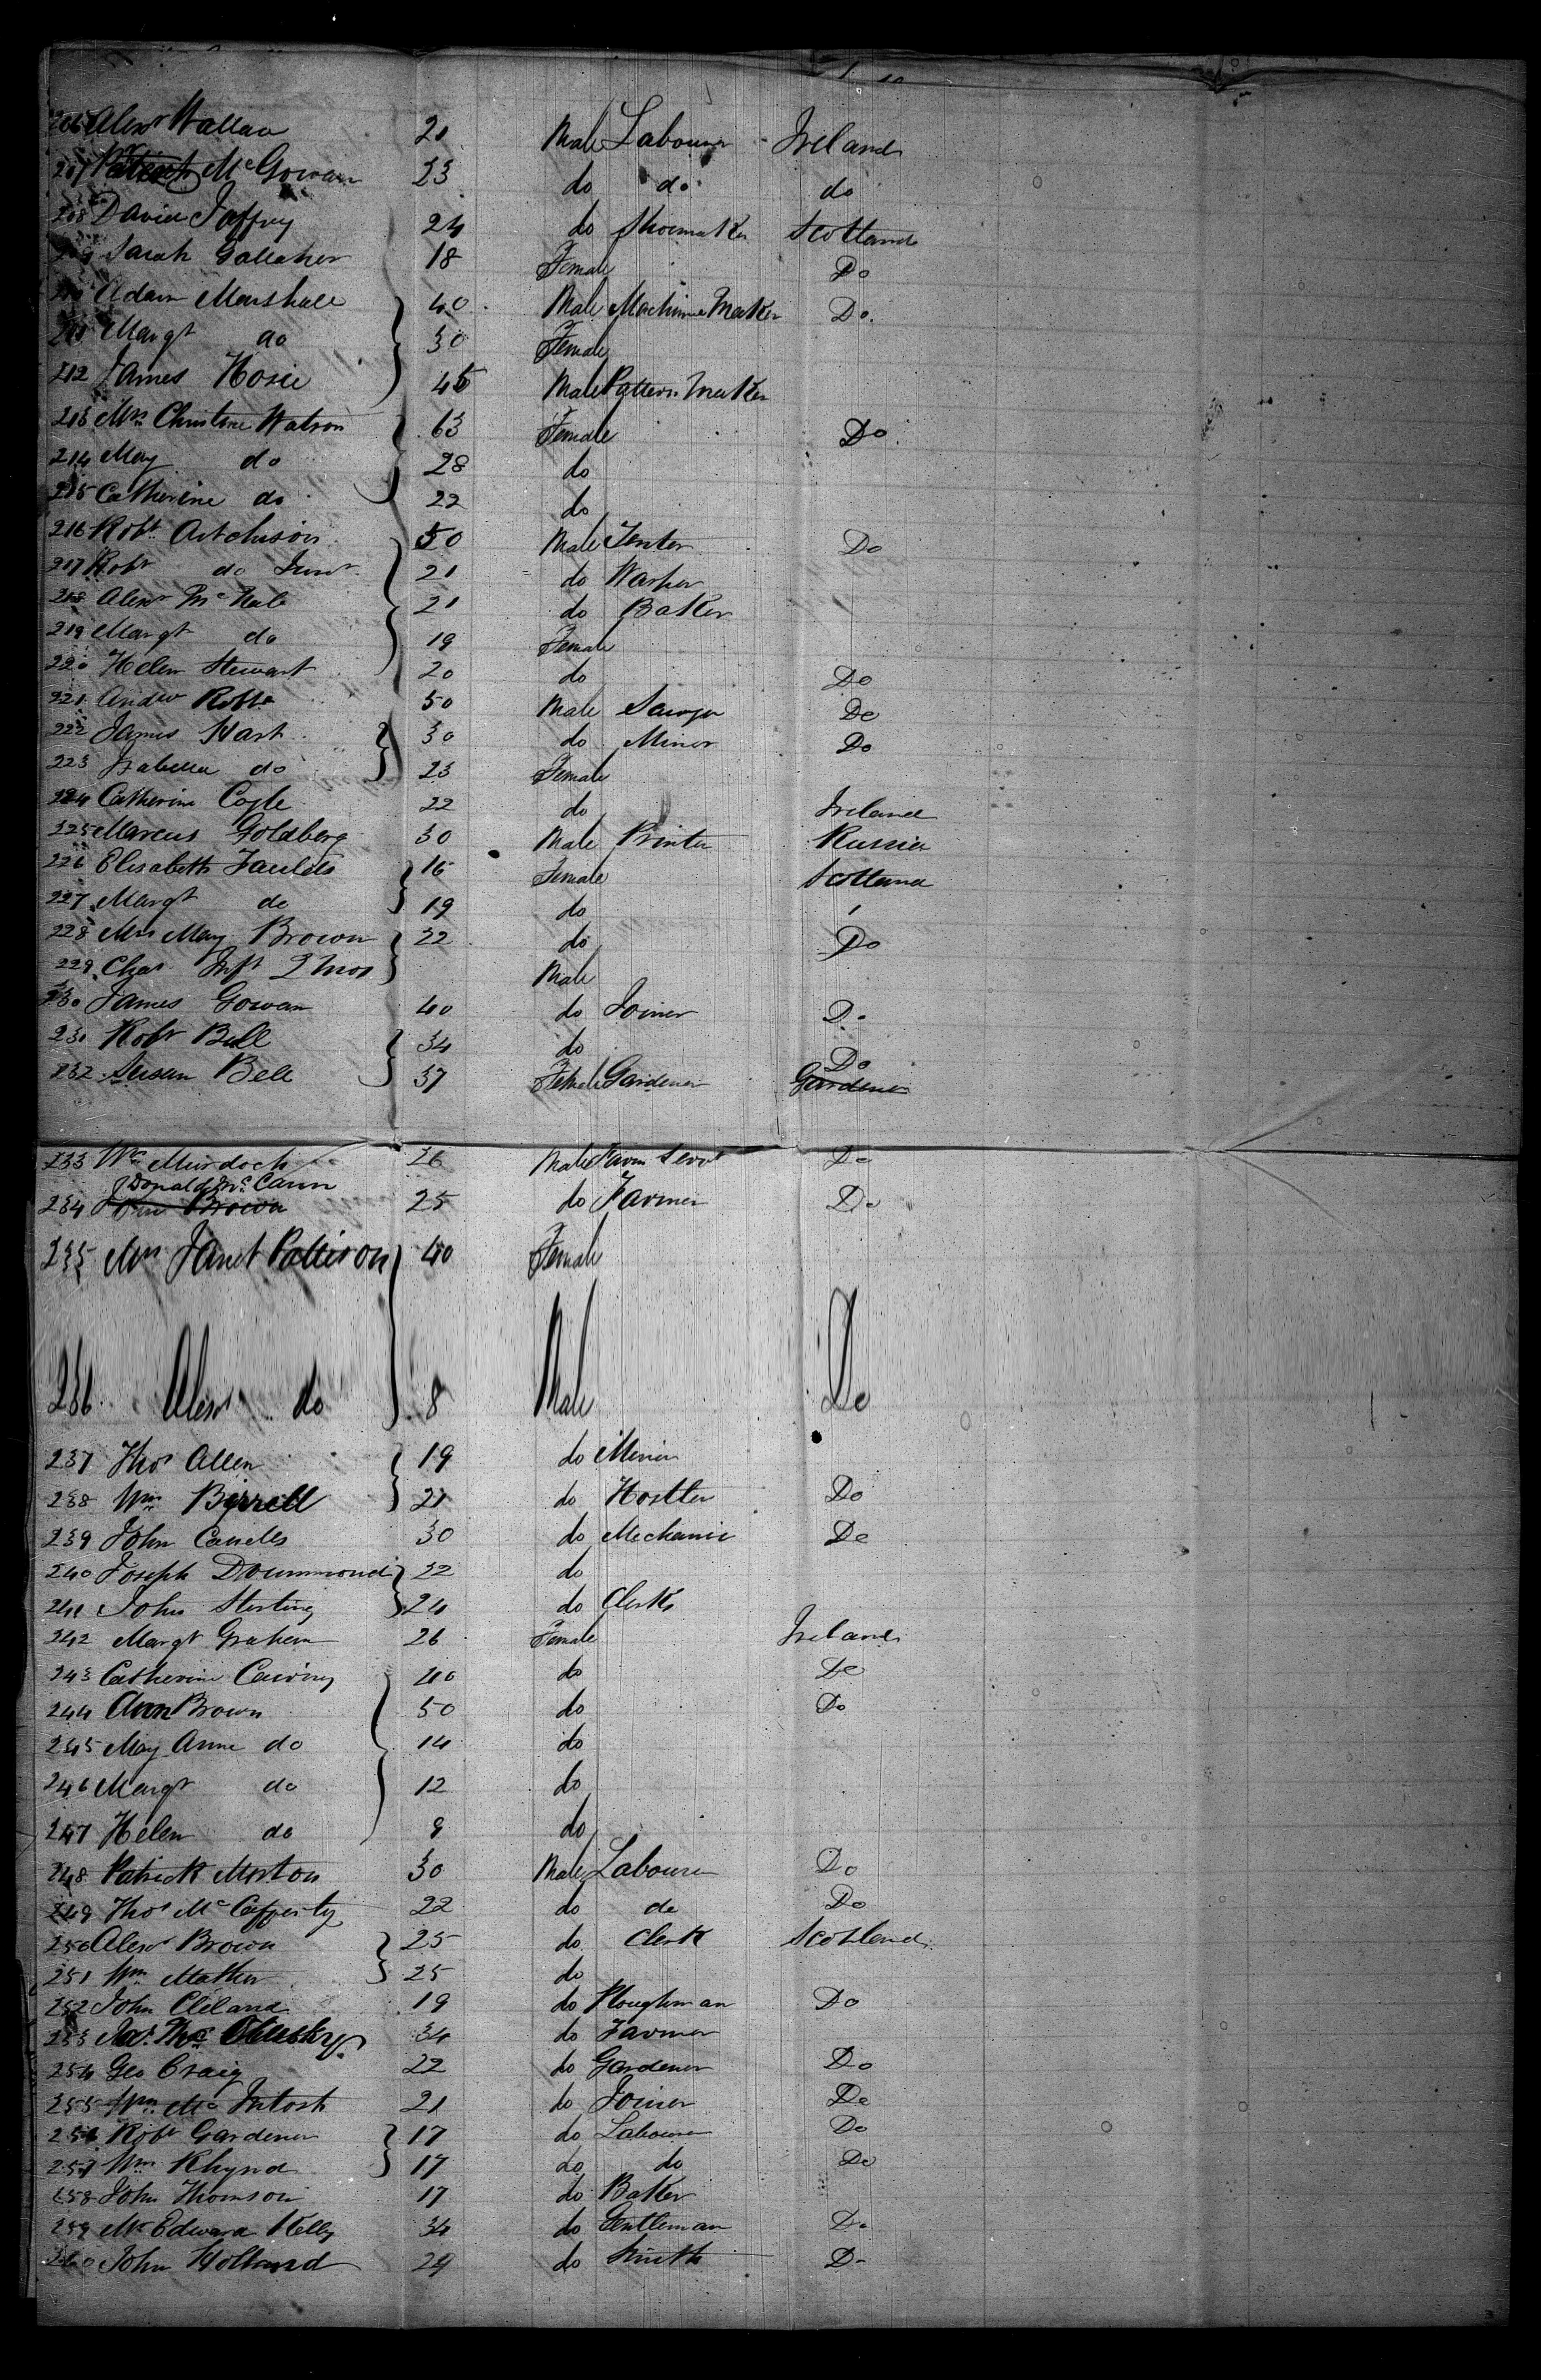 206 Alexr Wallace 21 Male Labourer Ireland
207 Patrick McGowan 23 do do do
208 David Jaffrey 24 do Shoemaker Scotland
209 Sarah Gallaher 18 Female Do
210 Adam Marshall 40 Male Machine Maker Do
211 Margt do 30 Female
212 James Hosie 45 Male Pattern Maker
213 Mrs Christine Watson 63 Female Do
214 May do 28 do
215 Catherine do 22 do
216 Robt Aitchison 50 Male Tenter Do
217 Robt do Junr 21 do Warper
218 Alexr McNab 21 do Baker
219 Margt do 19 Female
220 Helen Stewart 20 do Do
221 Andw Robb 50 Male Sawyer Do
222 James Hart 30 do Minor Do
223 Isabella do 23 Female
224 Catherine Coyle 22 do Ireland
225 Marcus Goldberg 30 Male Printer Russia
226 Elisabeth Faulds 16 Female Scotland
227 Margt do 19 do
228 Mrs May Brown 22 do Do
229 Chas Inft 2 mos Male
230 James Gowan 40 do Joiner Do
231 Robt Bell 34 do Do
232 Susan Bell 37 Female Gardener Gardener
233 Wm Murdoch 26 Male Farm Servt Do
Donald McCann
234 John Brown 25 do Farmer Do
235 Mrs Janet Pattison 40 Female
236 Alexr do 8 Male Do
237 Thos Allen 19 do Miner
238 Wm Birrell 21 do Hostler Do
239 John 30 do Mechanic Do
240 Joseph Drummond 22 do
241 John Sterling 24 do Clerk
242 Margt Graham 26 Female Ireland
243 Catherine 40 do Do
244 Ann Brown 50 do Do
245 May Anne do 14 do
246 Margt do 12 do
247 Helen do 9 do
248 Patrick Morton 30 Male Labourer Do
249 Thos McCafferty 22 do do Do
250 Alexr Brown 25 do Clerk Scotland
251 Wm Mather 25 do
252 John Cleland 19 do Ploughman Do
253 34 do Farmer
254 Geo Craig 22 do Gardener Do
255 Wm McIntosh 21 do Joiner Do
256 Robt Gardener 17 do Labourer Do
257 Wm Rhynd 17 do do Do
258 John Thomson 17 do Baker
259 Mr Edward Kelly 34 do Gentleman Do
260 John Holland 29 do Smith Do